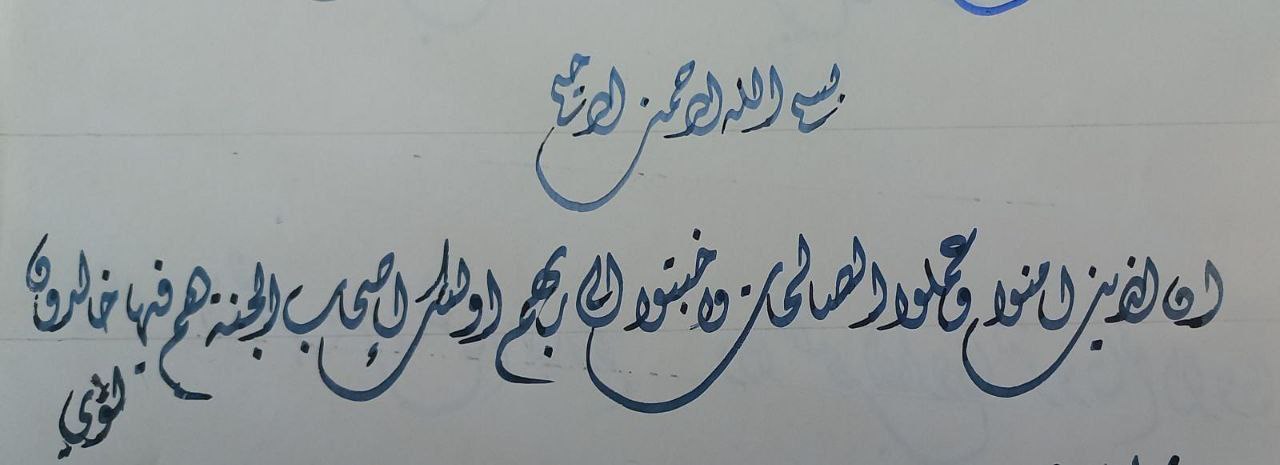 بسم الله الرحمن الرحيم
ان الذين امنوا وعملوا الصالحات واخبتوا الى ربهم اولئك اصحاب الجنة هم فيها خالدون
لؤي